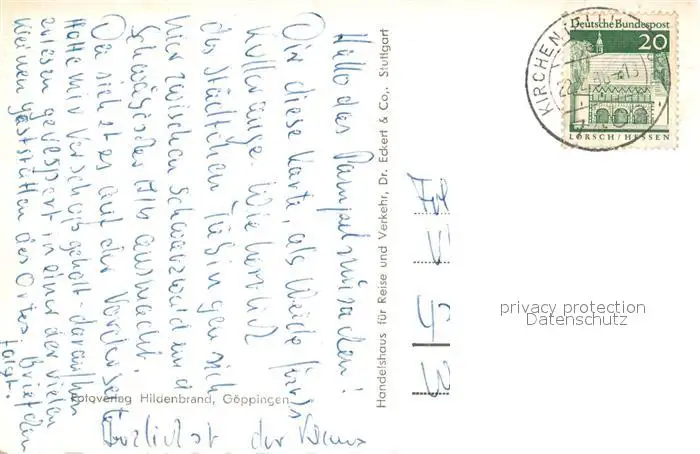 Hallo das Pampelmüschen!
Dir diese Karte, als Weide für's
Kulleräuge. Wie herrlich
das Städtchen Tübingen sich
hier zwischen Schwarzwald und
Schwäbischer Alb ausmacht.
Du siehst es auf der Vorderseite
Hatte mir Vorschuß geholt - daraufhin
zulesen gevespert in einer der vielen
kleinen Gaststätten des Ortes. Briefchen
folgt.
Herzlichst der
Fotoverlag Hildenbrand, Göppingen
Handelshaus für Reise und Verkehr, Dr. Eckert & Co., Stuttgart
KIRCHEN
Deutsche Bundespost
20
LORSCH/HESSEN
privacy protection
Datenschutz